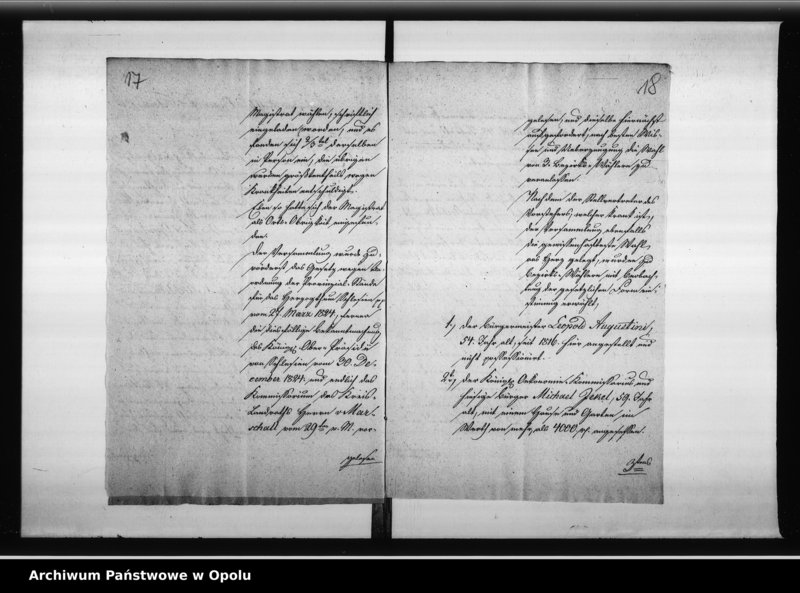 17
Magistrat wählen, schriftlich
eingeladen worden, und es
fanden sich 2/3tel derselben
in Person ein, die übrigen
wurden größtentheils wegen
Krankheiten entschuldigt.
Eben so hatte sich der Magistrat
als Orts-Obrigkeit eingefun-
den.
Der Versammlung wurde zu-
vörderst das Gesetz wegen An-
ordnung der Provinzial-Stände
für das Herzogthum Schlesien pp
vom 27 Maerz 1824, ferner
die diesfällige Bekanntmachung
des Königl. Ober-Praesidii
von Schlesien vom 30. De-
cember 1824. und endlich das
Kommissorium des Kreis-
Landraths Herrn v Mar-
schall vom 29ten v. M. vor-
gelesen
18
gelesen, und dieselbe hiernächst
aufgefordert, nach bestem Wis-
sen und Ueberzeugung die Wahl
von 3. Bezirks-Wählern zu
veranlassen.
Nachdem der Stellvertreter des
Vorstehers, welcher krank ist,
der Versammlung ebenfalls
die gewissenhafteste Wahl
ans Herz gelegt, wurden zu
Bezirks-Wählern mit Beobach-
tung der gesetzlichen Form ein-
stimmig erwählt,
1, der Bürgermeister Leopold Augustini,
54. Jahr alt, seit 1816. hier angestellt und
nicht possessionirt.
2, der Königl. Oekonomie-Kommissarius und
hiesige Bürger Michael Jekel, 59. Jahr
alt, mit einem Hause und Garten im
Werth von mehr, als 4000 rt. angesessen.
3tens
Archiwum Państwowe w Opolu